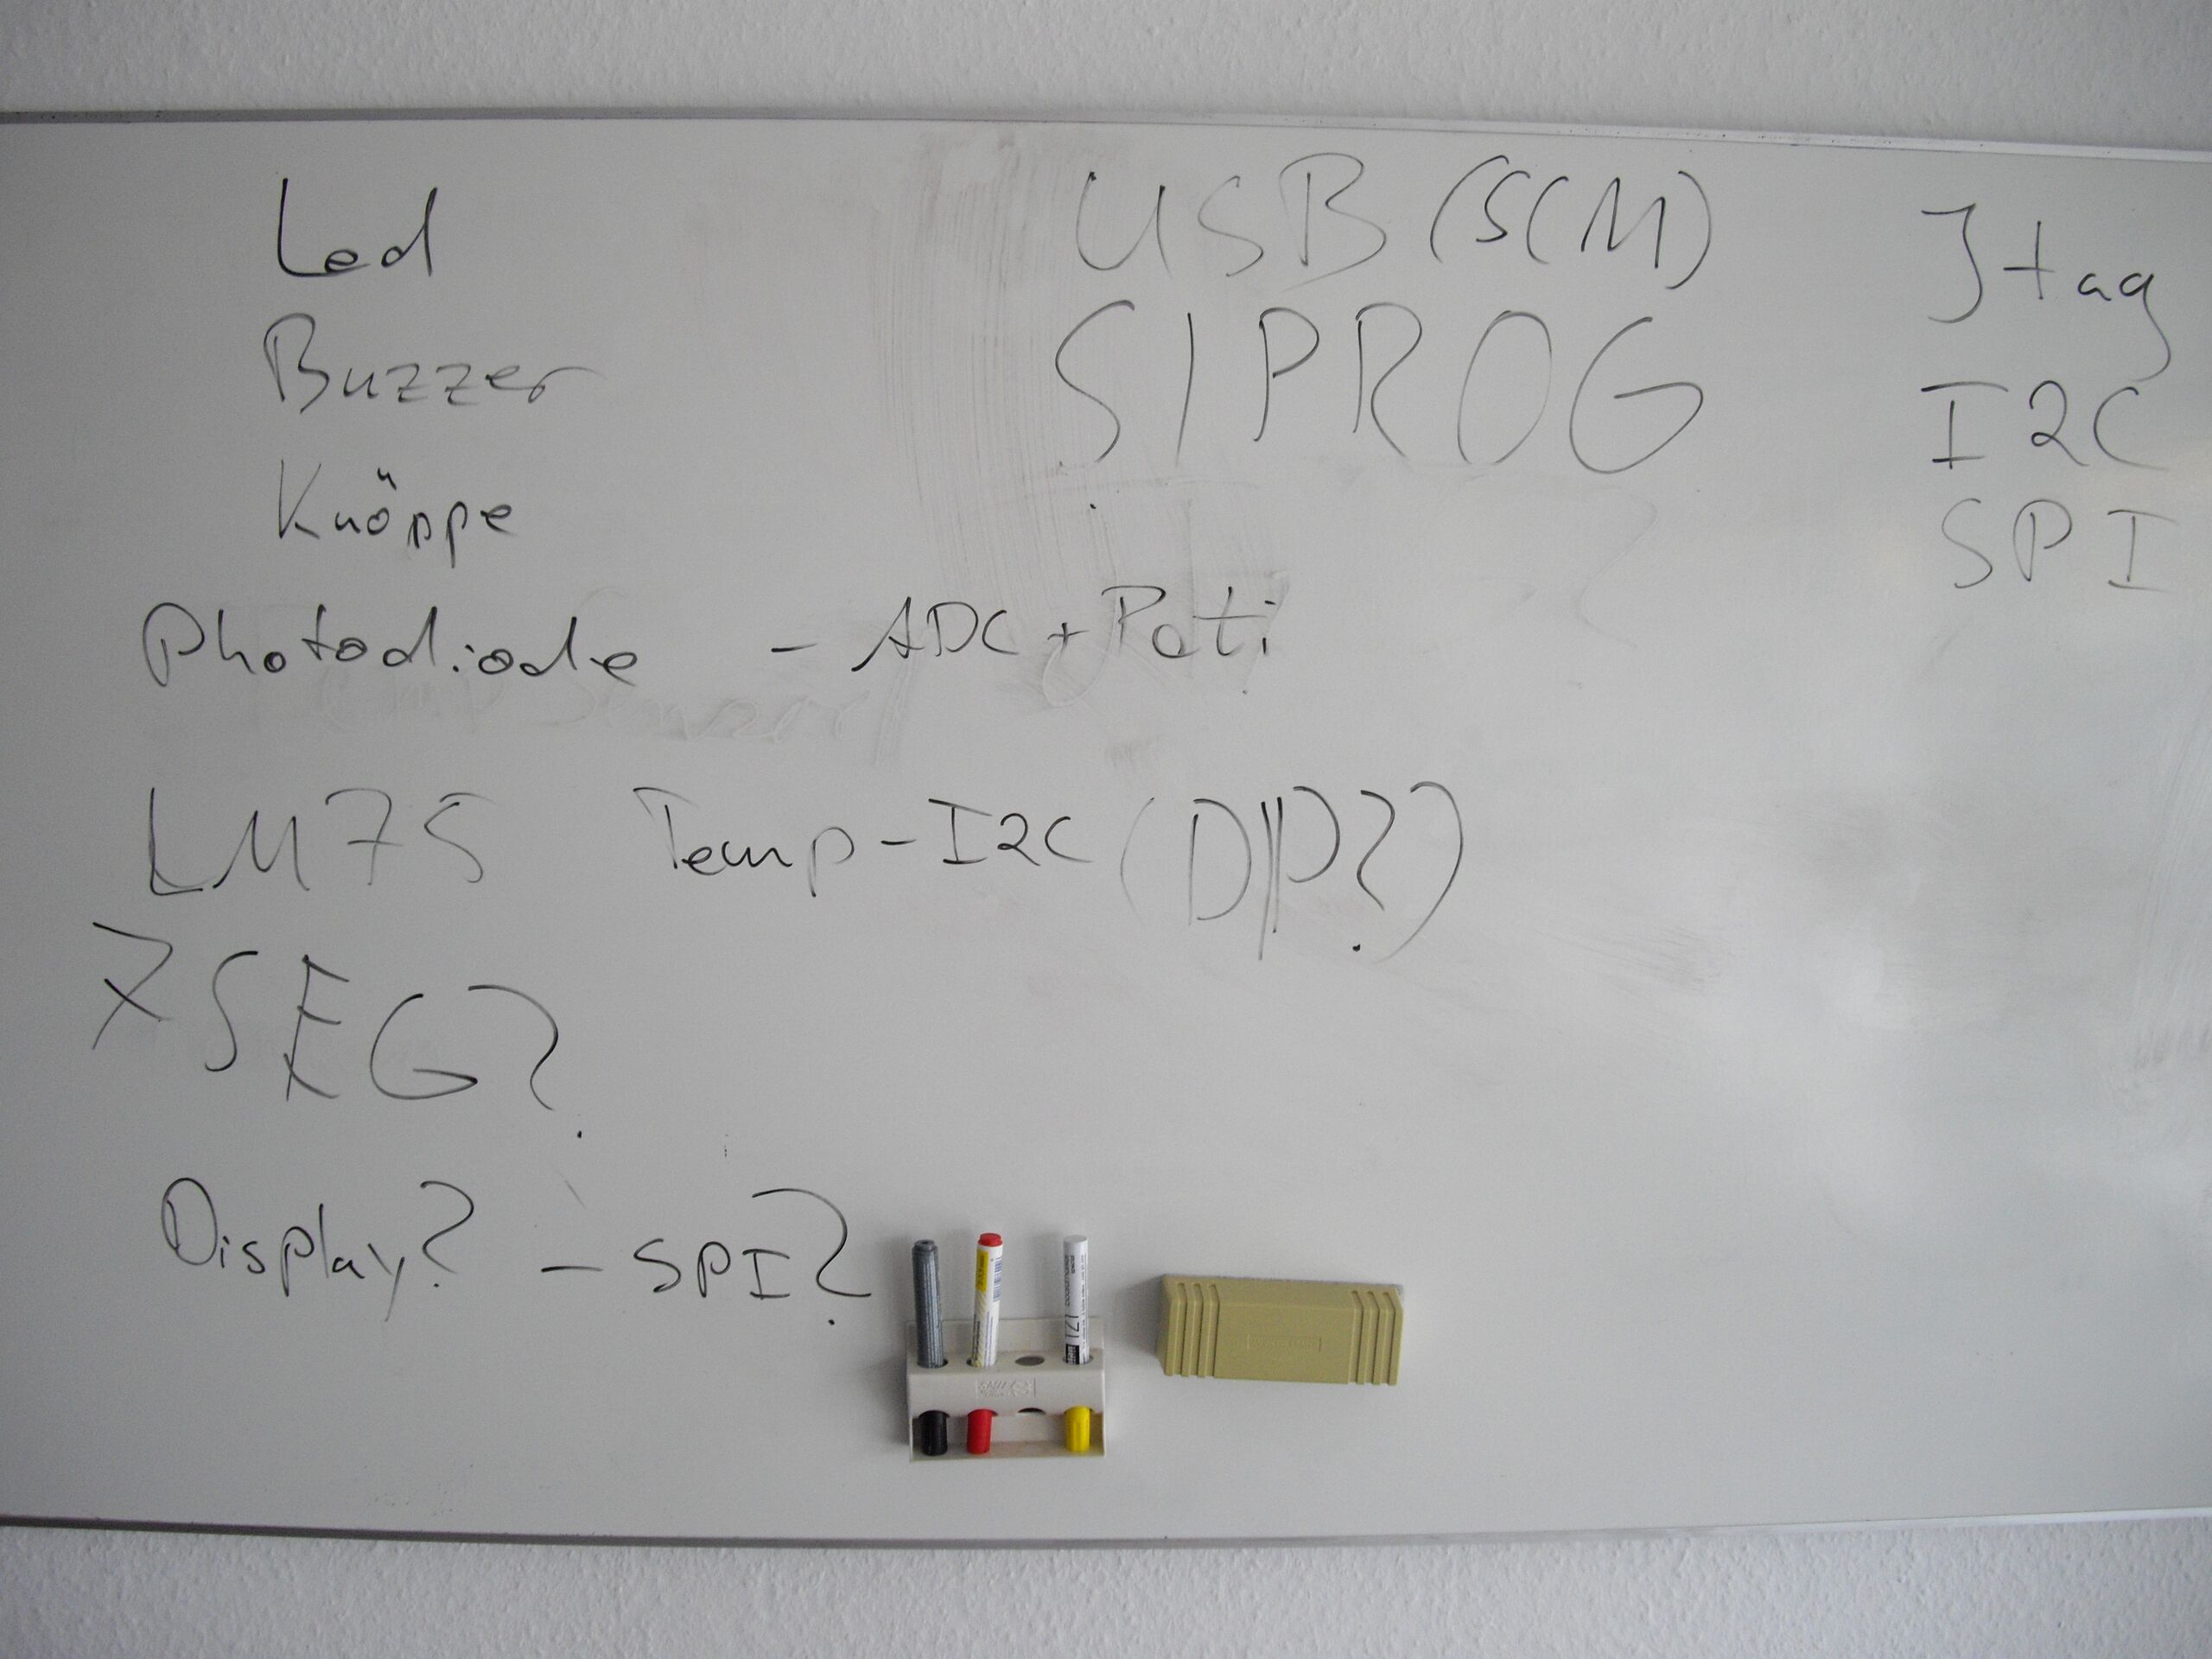 Led
Buzzer
Knöppe
Photodiode - ADC + Poti
LM75 Temp-I2C (DIP?)
7SEG?
Display? - SPI?
USB (SCM)
SIPROG
Jtag
I2C
SPI